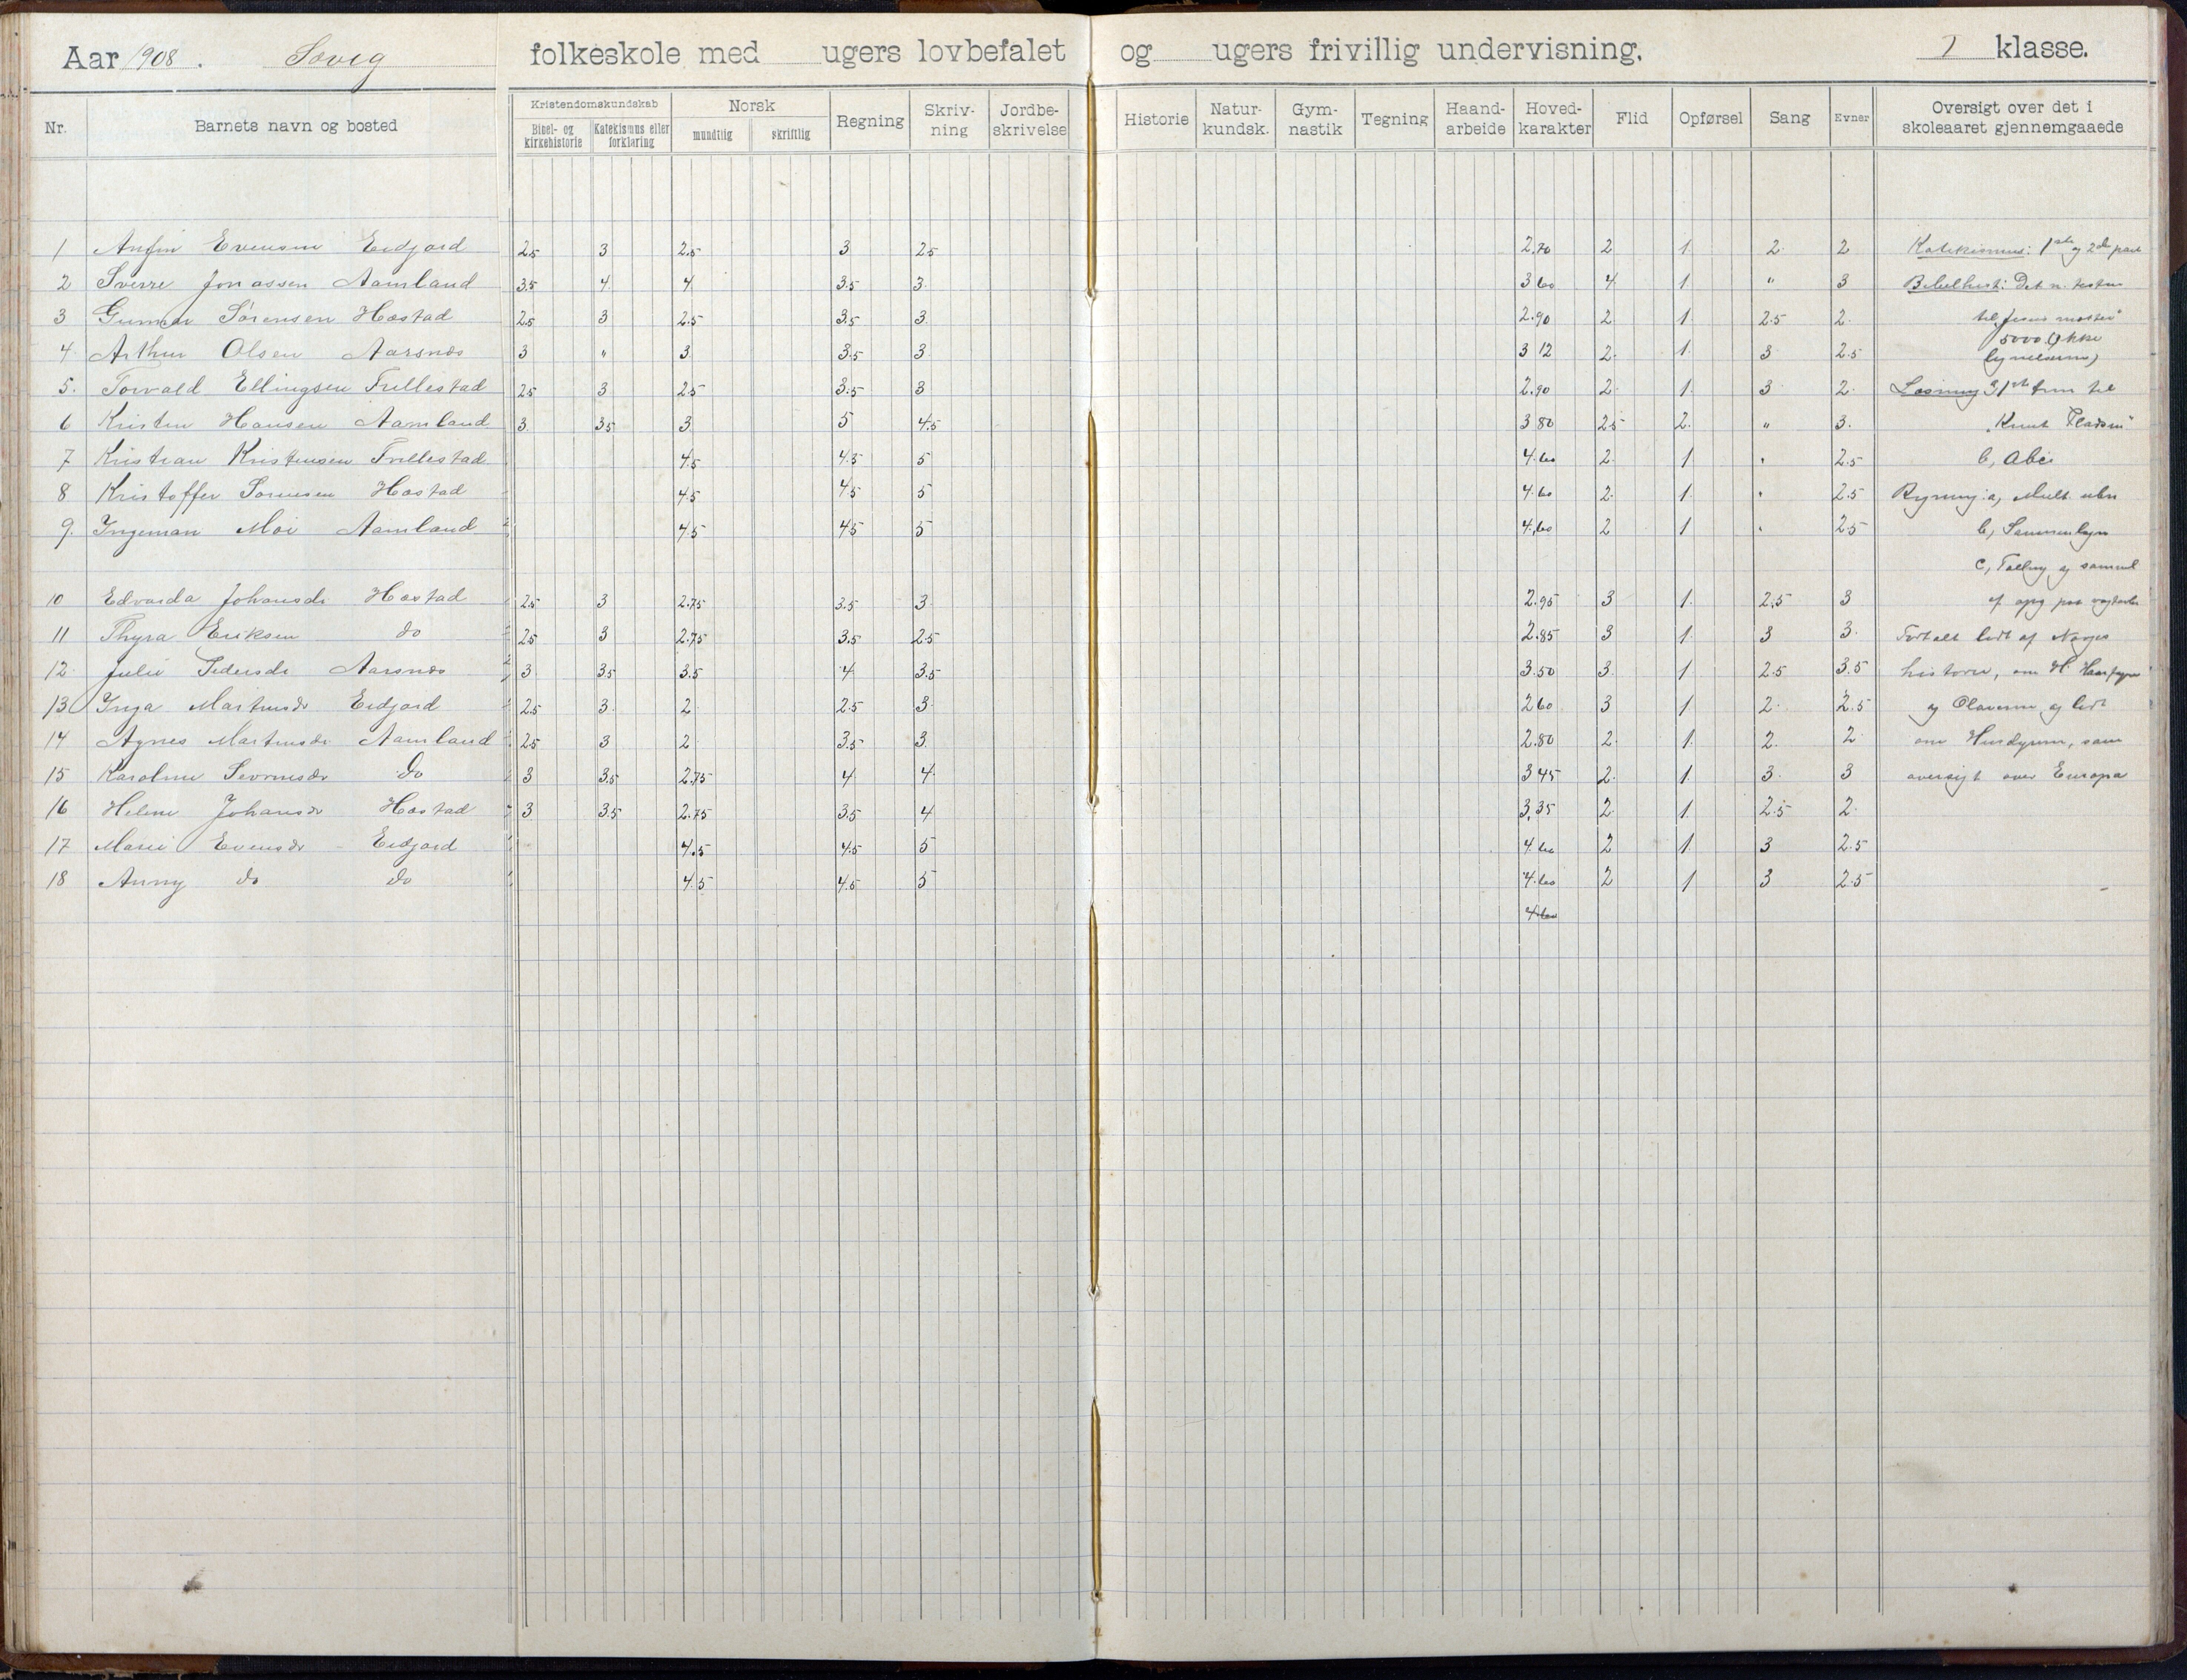 Aar 1908. Søvig folkeskole med ugers lovbefalet og ugers frivillig undervisning. klasse.
Nr. Barnets navn og bosted Kristendomskundskab Bibel- og kirkehistorie Katekismus eller forklaring Norsk mundtlig skriftlig Regning Skriv-ning Jordbe-skrivelse Historie Natur-kundsk. Gym-nastik Tegning Haand-arbeide Hoved-karakter Flid Opførsel Sang Evner Oversigt over det i skoleaaret gjennemgaaede
1 Anfin Evensen Eidjord 2.5 3 2.5 3 2.5 2.70 2 1 2 2 Katekismus: 1ste og 2den part
2 Sverre Jonassen Aamland 3.5 4 4 3.5 3 3 60 4 1 " 3 Bibelhist: Det n. testm
3 Gunnar Sørensen Høstad 2.5 3 2.5 3.5 3 2.90 2 1 2.5 2 til "Jesus
4 Arthur Olsen Aarsnes 3 " 3 3.5 3 3 12 2 1 3 2.5 5000 (ikke lignelserne)
5. Torvald Ellingsen Trellestad 2.5 3 2.5 3.5 3 2.90 2 1 3 2 Læsning til
6 Kristen Hansen Aamland 3 3.5 3 5 4.5 3 80 2.5 2 " 3. "Knut
7 Kristian Kristensen Trellestad 4.5 4.5 5 4.60 2 1 " 2.5 b, Abc
8 Kristoffer Sørensen Høstad 4.5 4.5 5 4.60 2 1 " 2.5 Regning: a, Mult.
9. Ingeman Moi Aamland 4.5 4.5 5 4.60 2 1 " 2.5 b, Sammenlægn
c, Tælling og
10 Edvarda Johansdr Høstad 2.5 3 2.75 3.5 3 2.95 3 1 2.5 3 af opg paa
11 Thyra Eriksen do 2.5 3 2.75 3.5 2.5 2.85 3 1 3 3 Fortalt lidt af Norges
12 Julie Pedersdr Aarsnes 3 3.5 3.5 4 3.5 3.50 3 1 2.5 3.5 historie, om H. Haarfagre
13 Inga Martinsdr Eidjord 2.5 3 2 2.5 3 2 60 3 1 2 2.5 og Olaverne og lidt
14 Agnes Martinsdr Aamland 2.5 3 2 3.5 3 2.80 2 1 2 2 om Husdyrene, sam
15 Karoline Sevrinsdr do 3 3.5 2.75 4 4 3 45 2 1 3 3 oversigt over Europa
16 Helene Johansdr Høstad 3 3.5 2.75 3.5 4 3,35 2 1 2.5 2
17 Marie Evensdr Eidjord 4.5 4.5 5 4.60 2 1 3 2.5
18 Anny do do 4.5 4.5 5 4.60 2 1 3 2.5
4.60